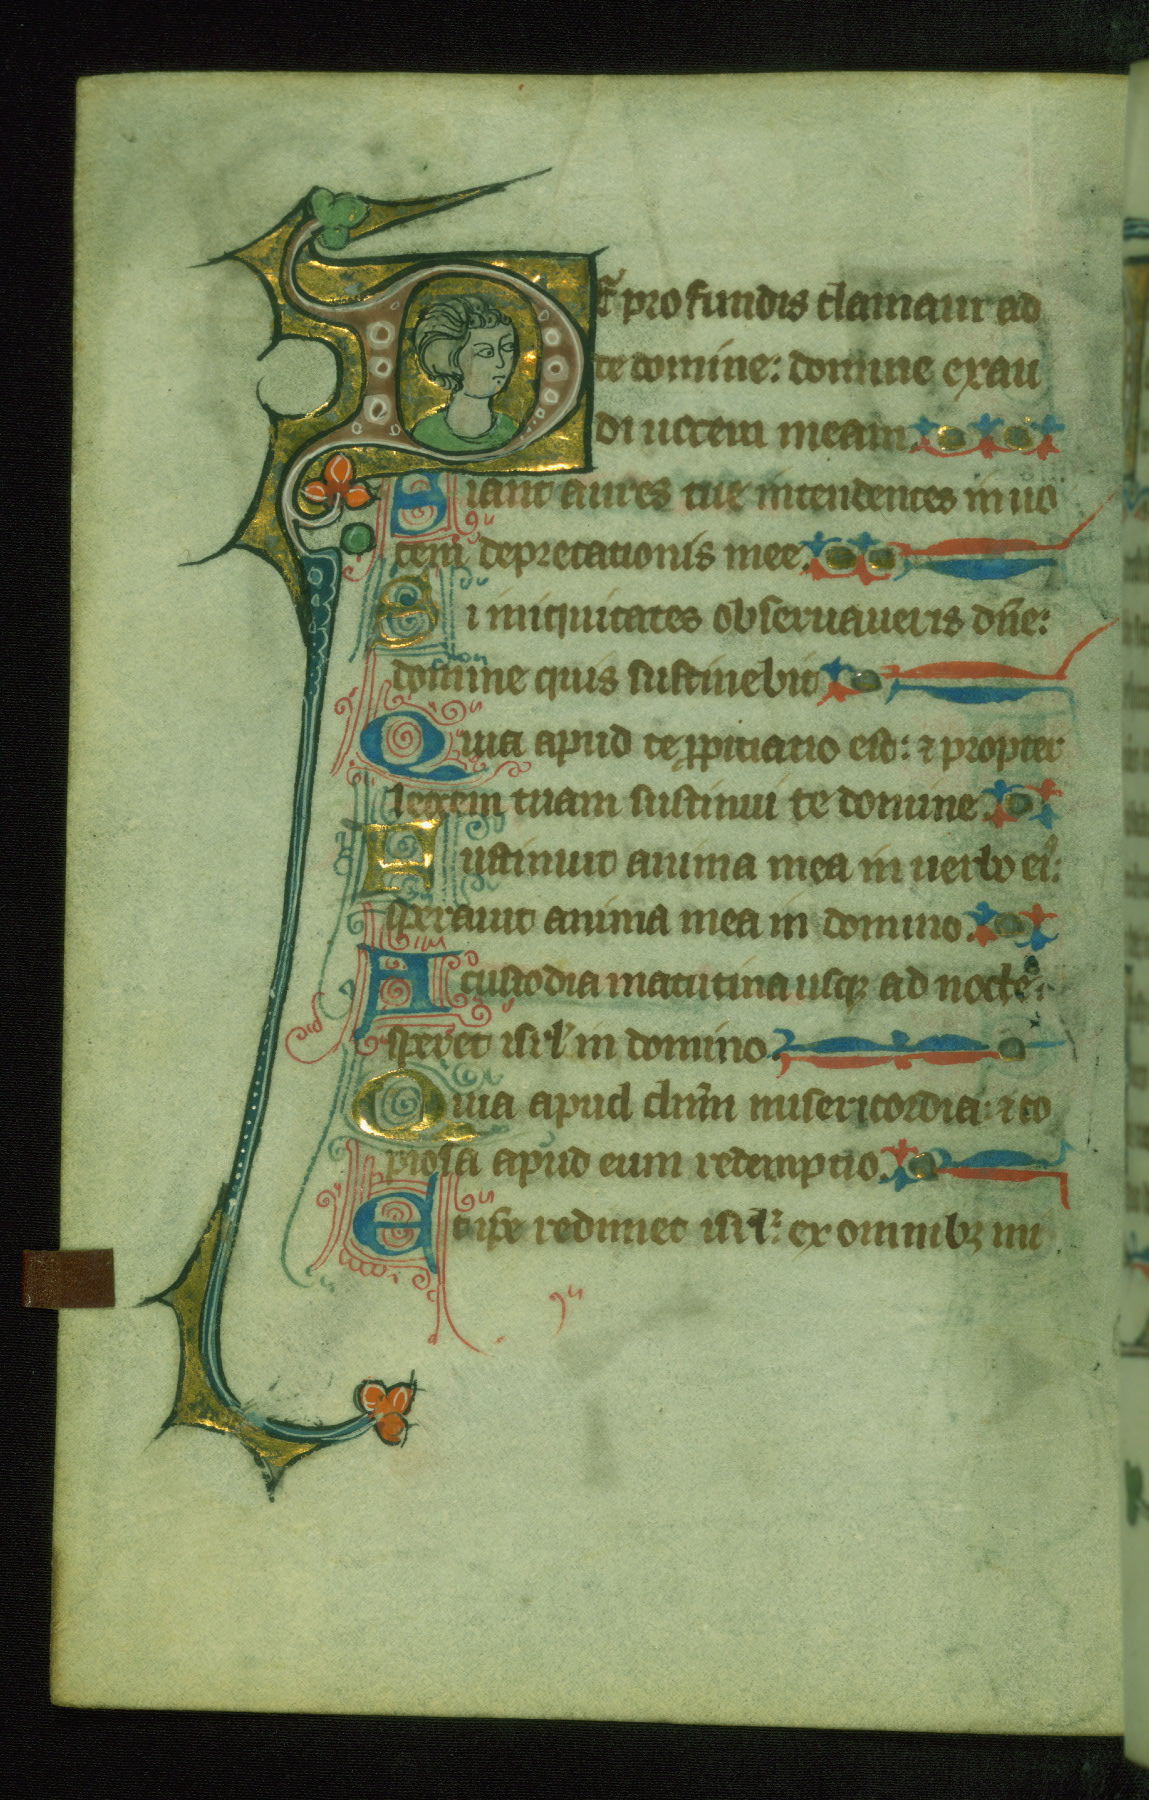 De profundis clamaui ad
te domine: domine exau
di uocem meam.
Fiant aures tue intendentes in uo
cem deprecationis mee.
Si iniquitates obseruaueris dñe:
domine quis sustinebit
Quia apud te ꝓpitiatio est: ⁊ propter
legem tuam sustinui te domine.
Sustinuit anima mea in uerbo ei:
sperauit anima mea in domino.
A custodia matutina usqꝫ ad nocte:
speret isrl' in domino
Quia apud dnm misericordia: ⁊ co
piosa apud eum redemptio.
Et ipse redimet isrl': ex omnibꝫ ini